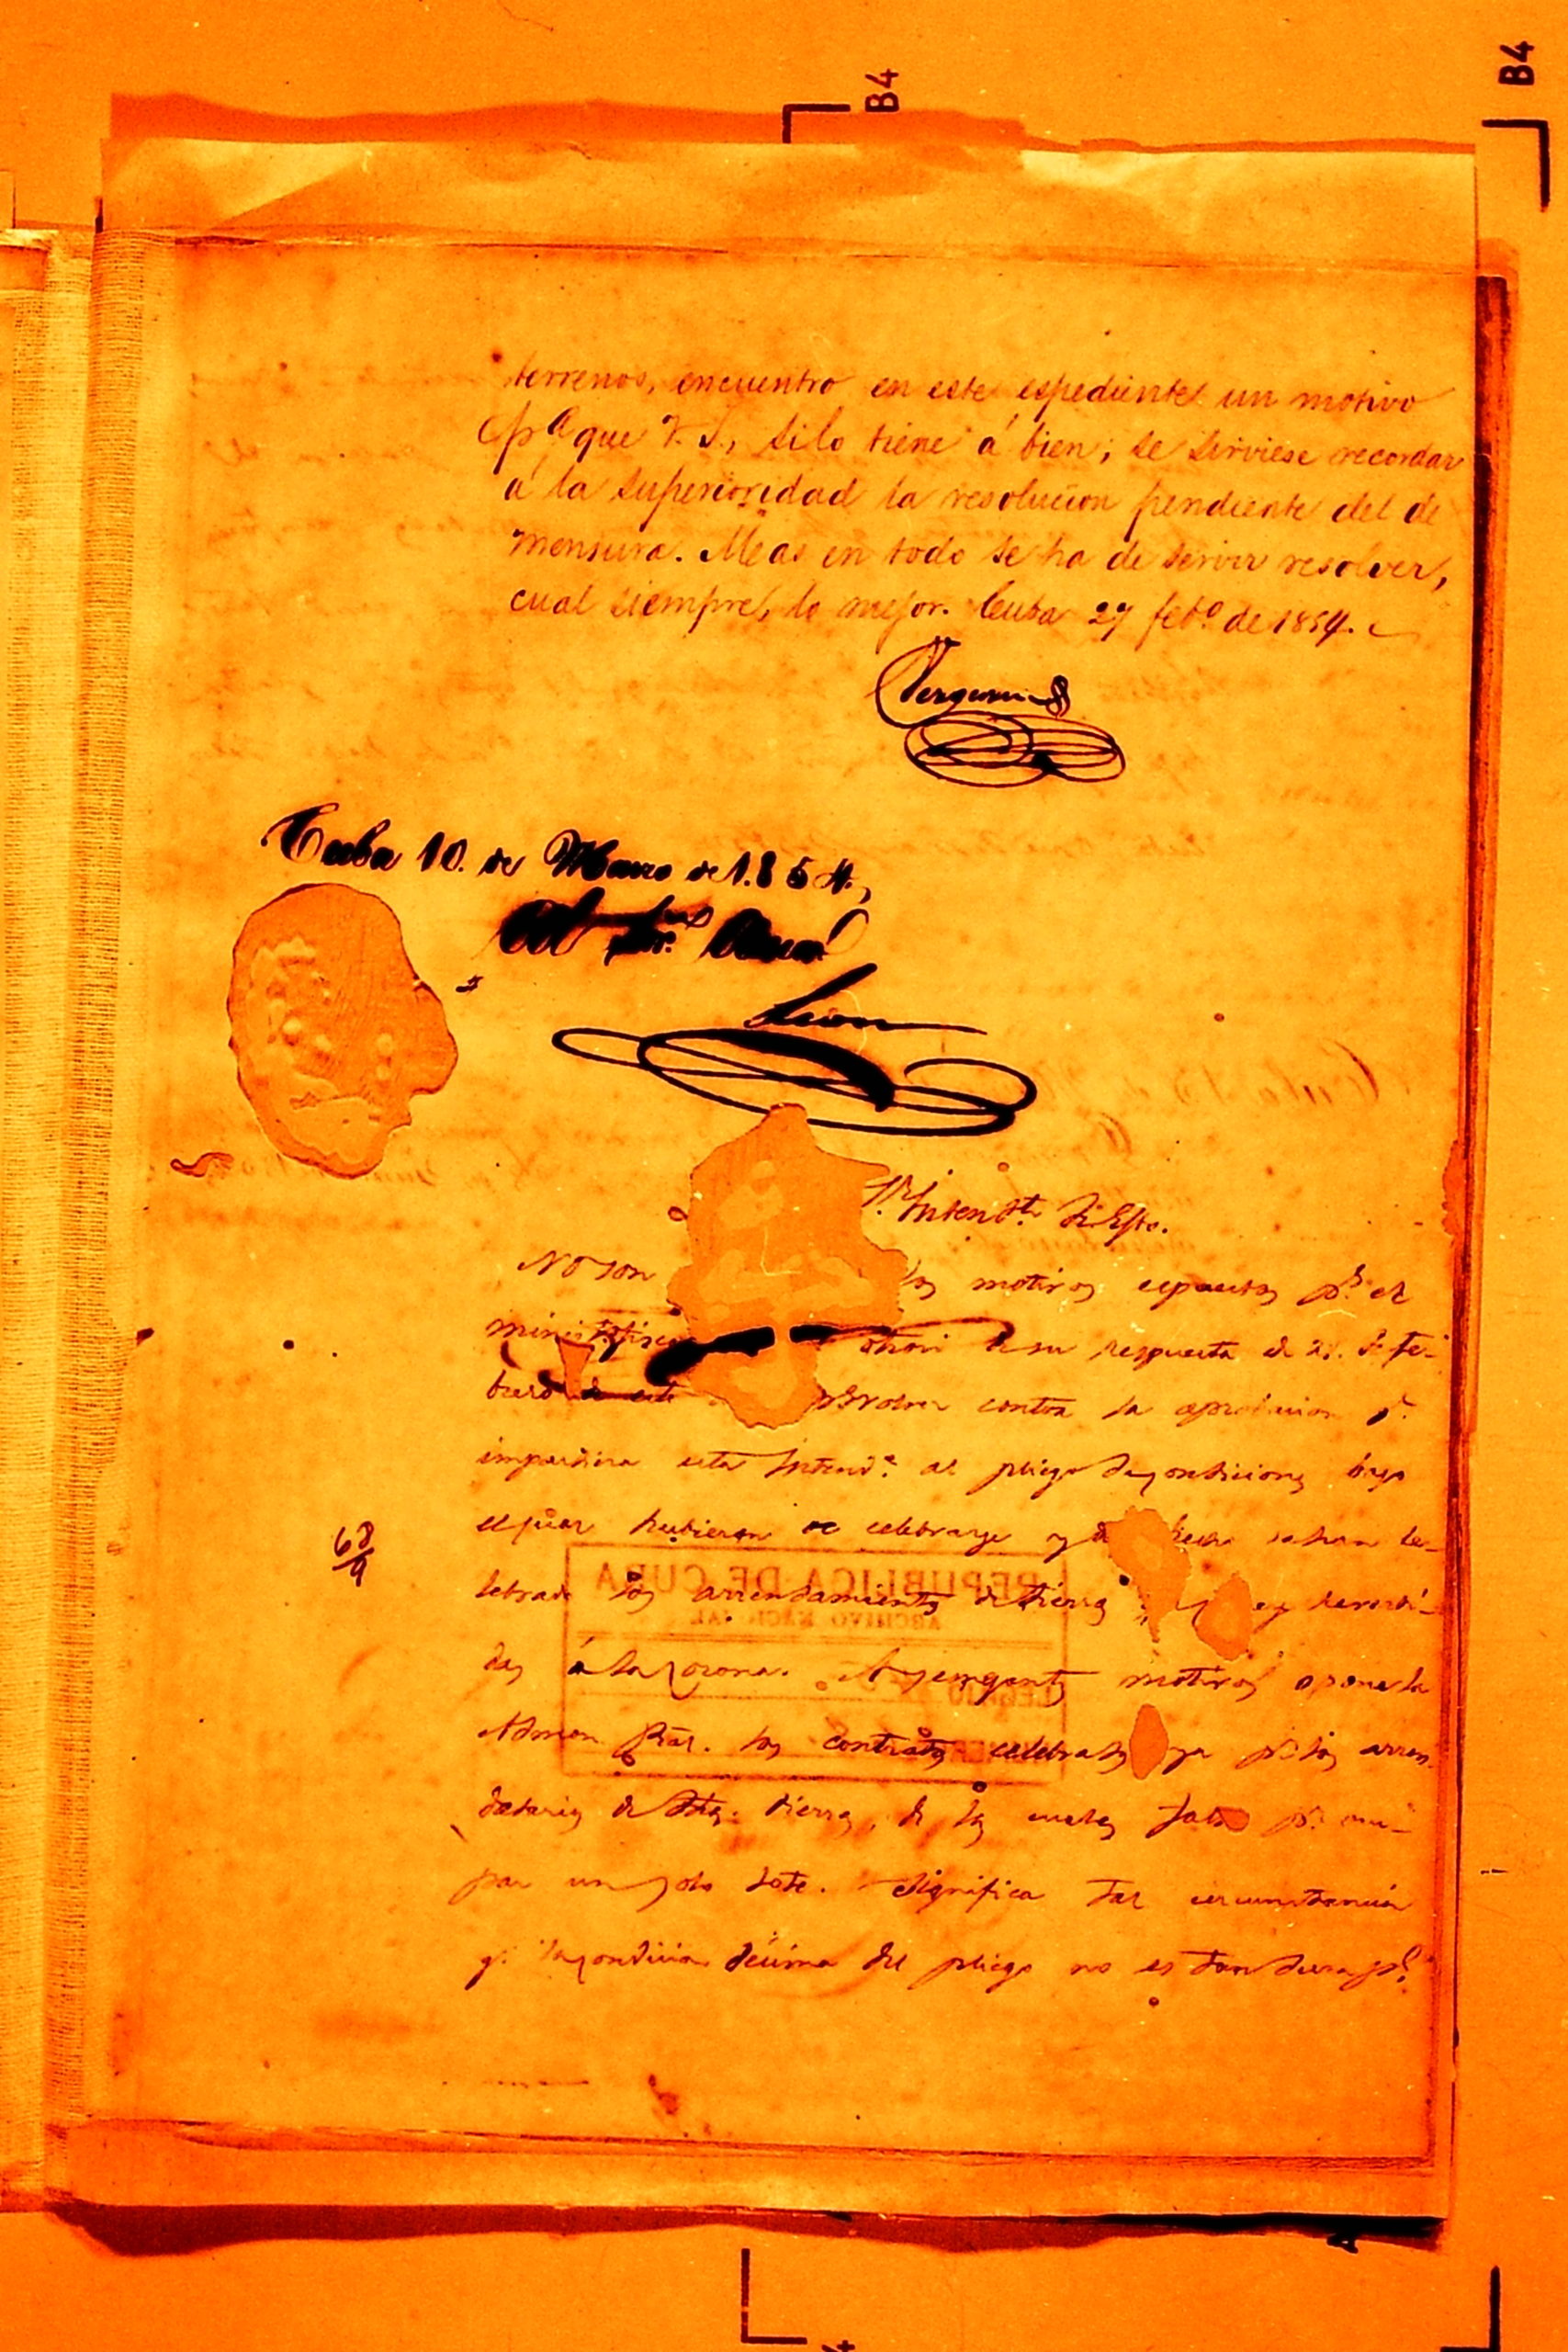 B4
B4
terrenos, encuentro en este espediente un motivo
pa que V. S., si lo tiene á bien, se sirviese recordar
á la superioridad la resolucion pendiente del de
mensura. Meas en todo se ha de servir resolver,
cual siempre, lo mejor. Cuba 27 febo de 1854.
Cuba 10. de Marzo de 1.854.,
Al Sr.
Leon
Sr. Intendte
No son los motivos espuestos pr el
su respuesta de 27. de fe-
brero de este contra la aprobacion q.
impartiera esta Intenda. al pliego de condiciones bajo
el qual hubieran de celebrarse y de hecho se han ce-
68
9
lebrado los arrendamientos de tierras
das á la Corona. motivos opone la
Admon Ral. los contratos celebrados ya pr los arren-
datarios de dhas. tierras, de las cuales falta pr ocu-
par un solo lote. Significa tal circunstancia
q. la condicion décima del pliego no es tan dura
REPUBLICA DE CUBA
ARCHIVO NACIONAL
LEGAJO
NUMERO